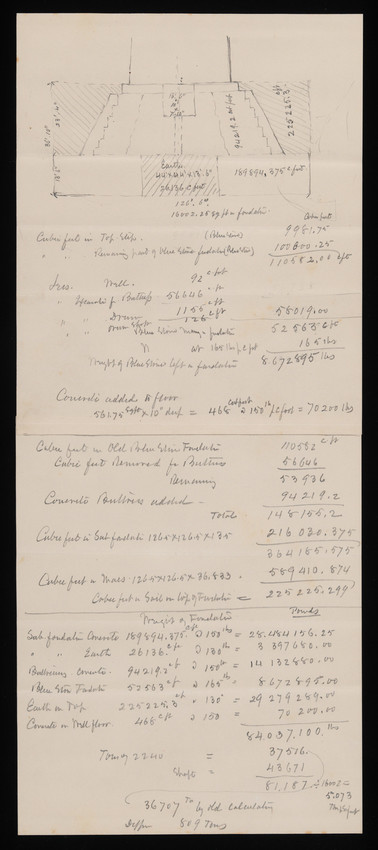 189894.375 c feet
Earth
44 x 44 x 13'.6"
26136 c feet
94219.2 c feet
225225.3
120'. 0"
16002.25 sq ft in foundation
Cubic feet
Cubic feet in Top Step. (Blue Stone) 9981.75
" " Remaining part of blue stone foundation (Blue Stone) 100600.25
110582.00 cft
Less. Well. 92 c feet
" for Buttress 56646 "
" " Drain 1155 cft
126 cft 58019.00
Blue Stone in foundation 52563 cft
at 165 lbs p c feet 165 lbs
Weight of Blue Stone left in foundation 8672895 lbs
Concrete added to floor
5617 sq ft x 10" deep = 468 Cubfeet @ 150 lb p c foot = 70200 lbs
Cubic feet in Old Blue Stone Foundation 110582 c ft
Cubic feet Removed for Buttress 56646
Remaining 53936
Concrete Buttress added - 94219.2
Total 148155.2
Cubic feet in Sub foundation 126.5 x 126.5 x 13.5 216030.375
364185.575
Cubic feet in Mass 126.5 x 126.5 x 36.833 - 589410.874
Cubic feet in Earth on top of Foundation = 225225.299
Weight of Foundation Pounds
Sub foundation Concrete 189894.375 cft @ 150 lbs = 28.484156.25
" " Earth 26136 cft @ 130 lb = 3 397680.00
Buttress. concrete. 94219.2 cft @ 150 lb = 14 132880.00
Blue Stone Foundation 52563 cft @ 165 lb = 8.672895.00
Earth on Top 225225.3 cft @ 130 = 29 279289.00
Concrete on Well floor. 468 cft @ 150 = 70 200.00
84.037.100. lbs
Tons @ 2240 = 37516.
Shaft = 43671
81.187 ÷ 16002 =
5.073
36707 Tn by old calculation
Differ 809 Tons